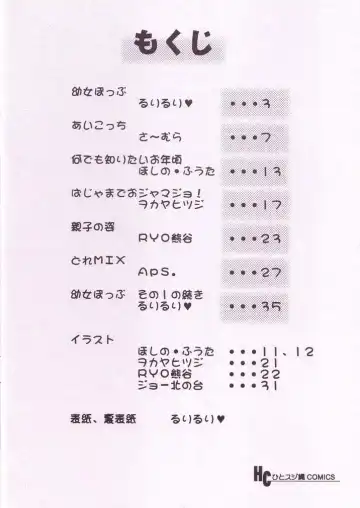 もくじ
幼女ぽっぷ
るいるい♥ ・・・3
あいこっち
さ〜むら ・・・7
何でも知りたいお年頃
ほしの・ふうた ・・・13
はじゃまでおジャマジョ！
ヲカヤヒツジ ・・・17
親子の容
RYO熊谷 ・・・23
とれMIX
APS. ・・・27
幼女ぽっぷ その1の続き
るいるい♥ ・・・35
イラスト
ほしの・ふうた ・・・11、12
ヲカヤヒツジ ・・・21
RYO熊谷 ・・・22
ジョー北の台 ・・・31
表紙、裏表紙 るいるい♥
HC ひとスジ縄 COMICS